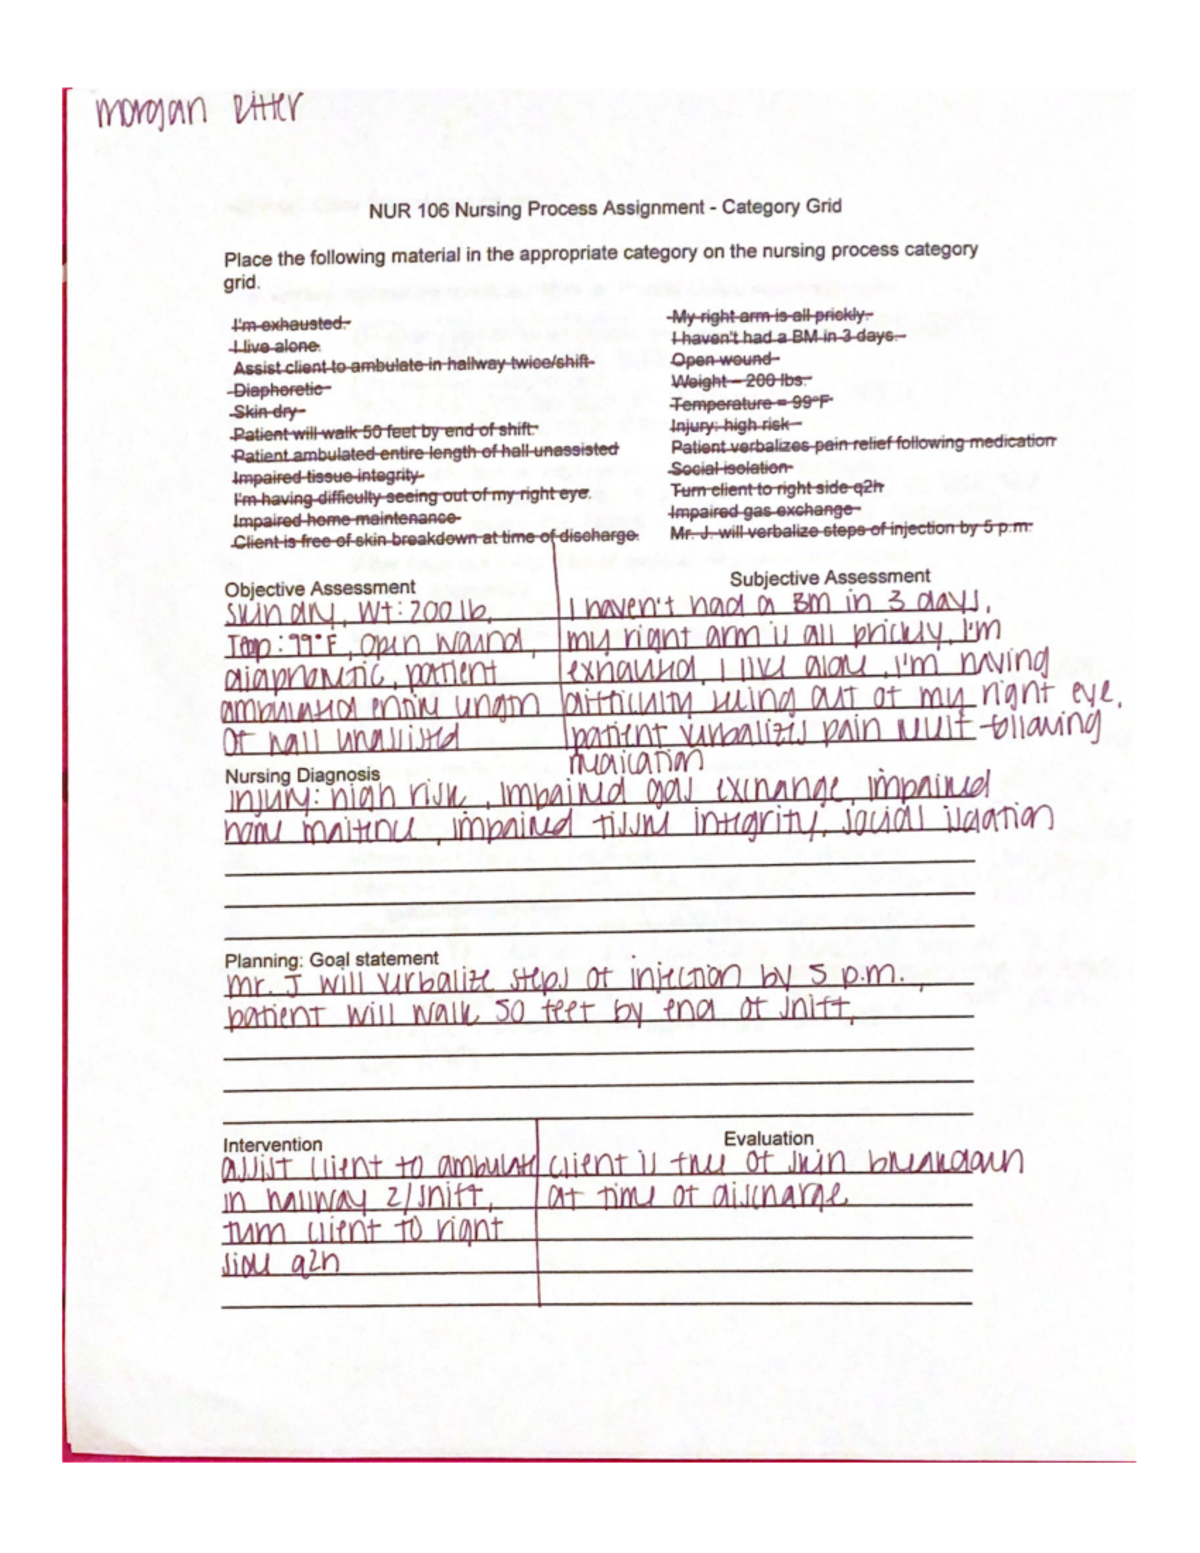 morgan Ritter
NUR 106 Nursing Process Assignment - Category Grid
Place the following material in the appropriate category on the nursing process category
grid.
I'm exhausted.
I live alone.
Assist client to ambulate in hallway twice/shift
Diaphoretic
Skin dry
Patient will walk 50 feet by end of shift
Patient ambulated entire length of hall unassisted
Impaired tissue integrity
I'm having difficulty seeing out of my right eye.
Impaired home maintenance
Client is free of skin breakdown at time of discharge.
My right arm is all prickly.
I haven't had a BM in 3 days.
Open wound
Weight – 200 lbs.
Temperature = 99°F
Injury: high risk
Patient verbalizes pain relief following medication
Social isolation
Turn client to right side q2h
Impaired gas exchange
Mr. J. will verbalize steps of injection by 5 p.m.
Objective Assessment
skin dry, Wt: 200 lb,
Temp: 99°F, open wound,
diaphoretic, patient
ambulated entire length
of hall unassisted
Subjective Assessment
I haven't had a BM in 3 days,
my right arm is all prickly, I'm
exhausted, I live alone, I'm having
difficulty seeing out of my right eye,
patient verbalizes pain relief following
medication
Nursing Diagnosis
injury: high risk, impaired gas exchange, impaired
home maitence, impaired tissue integrity, social isolation
Planning: Goal statement
mr. J will verbalize steps of injection by 5 p.m.,
patient will walk 50 feet by end of shift,
Intervention
assist client to ambulate
in hallway 2/shift,
turn client to right
side q2h
Evaluation
client is free of skin breakdown
at time of discharge